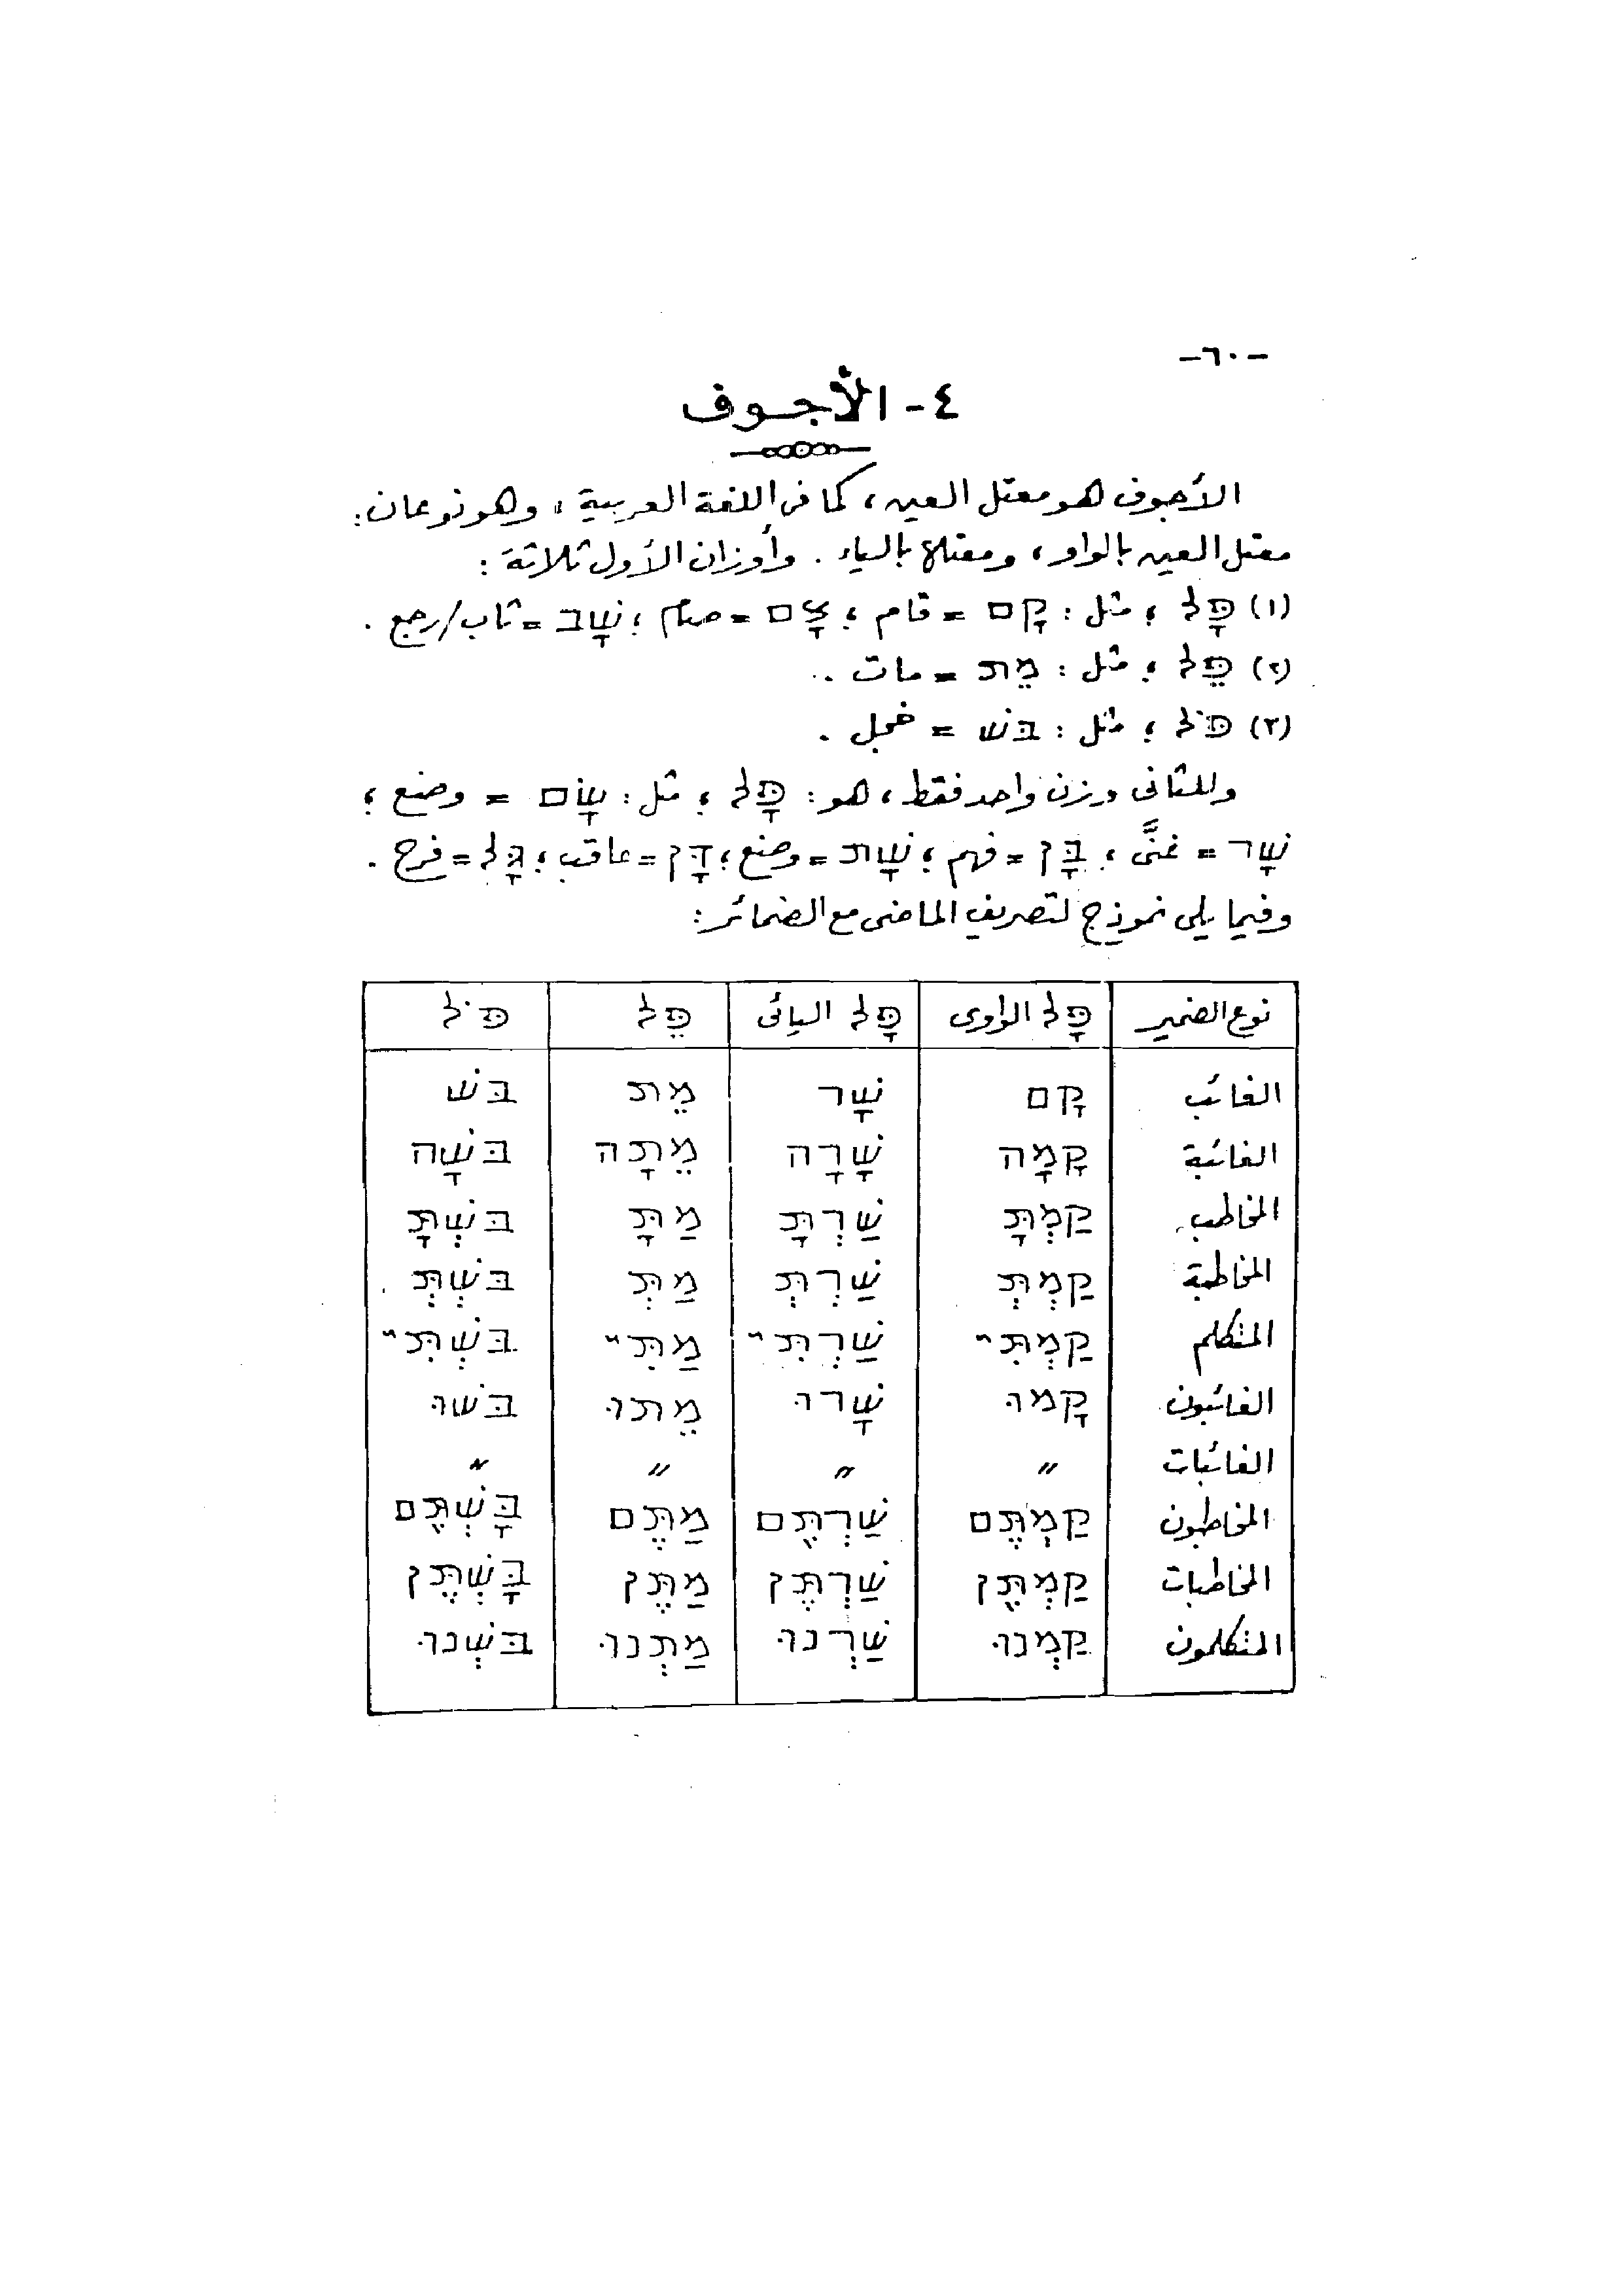 -٦٠-
٤- الأجوف
الأجوف هو معتل العين، كما فى اللغة العربية، وهو نوعان:
معتل العين بالواو، ومعتلة بالياء. وأوزان الأول ثلاثة:
(١) פָּל ؛ مثل: קָם = قام ؛ צָם = صام ؛ שָׁב = تاب/رجع.
(٢) פֵּל ؛ مثل: מֵת = مات.
(٣) פֹּל ؛ مثل: בֹּשׁ = خجل.
وللثانى وزن واحد فقط، هو: פָּל ؛ مثل: שָׂם = وضع ؛
שָׁר = غنَّى ؛ בָּן = فهم ؛ שָׁת = وضع ؛ דָּן = عاقب ؛ גָּל = فرح.
وفيما يلى نموذج لتصريف الماضى مع الضمائر:
نوع الضمير פָּל الواوى פָּל اليائى פֵּל פֹּל
الغائب קָם שָׁר מֵת בֹּשׁ
الغائبة קָמָה שָׁרָה מֵתָה בֹּשָׁה
المخاطب קַמְתָּ שַׁרְתָּ מַתָּ בֹּשְׁתָּ
المخاطبة קַמְתְּ שַׁרְתְּ מַתְּ בֹּשְׁתְּ
المتكلم קַמְתִּי שַׁרְתִּי מַתִּי בֹּשְׁתִּי
الغائبون קָמוּ שָׁרוּ מֵתוּ בֹּשׁוּ
الغائبات " " " "
المخاطبون קַמְתֶּם שַׁרְתֶּם מַתֶּם בָּשְׁתֶּם
المخاطبات קַמְתֶּן שַׁרְתֶּן מַתֶּן בָּשְׁתֶּן
المتكلمون קַמְנוּ שַׁרְנוּ מַתְנוּ בֹּשְׁנוּ